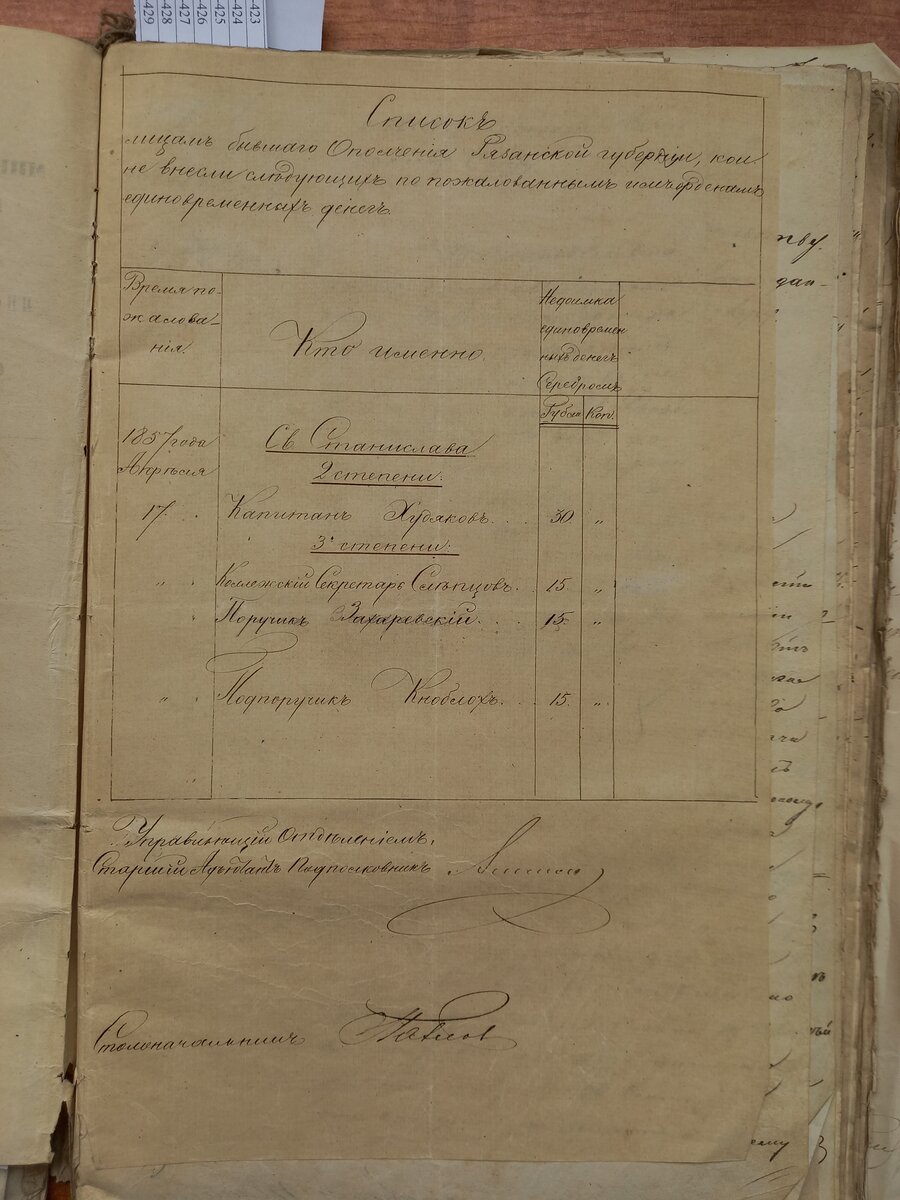 -429
-428
-427
-426
-425
-424
-423
Списокъ
лицамъ бывшаго Ополченія Рязанской губерніи, кои
не внесли слѣдующихъ по пожалованнымъ имъ орденамъ
единовременныхъ денегъ.
Время по-
жалова-
нія.
Кто именно.
Недоимка
единовремен
ныхъ денегъ
Серебромъ
Рубли Коп.
1857 года
Апрѣля
Св. Станислава
2 степени:
17. Капитанъ Худяковъ. . . 30 „
3й степени:
„ „ Коллежскій Секретарь Слѣпцовъ. 15 „
„ Поручикъ Захаревскій. . . 15 „
„ „ Подпоручикъ Кноблохъ. . . 15 „
Управляющій Отдѣленіемъ,
Старшій Адъютантъ Подполковникъ
Столоначальникъ Павлов